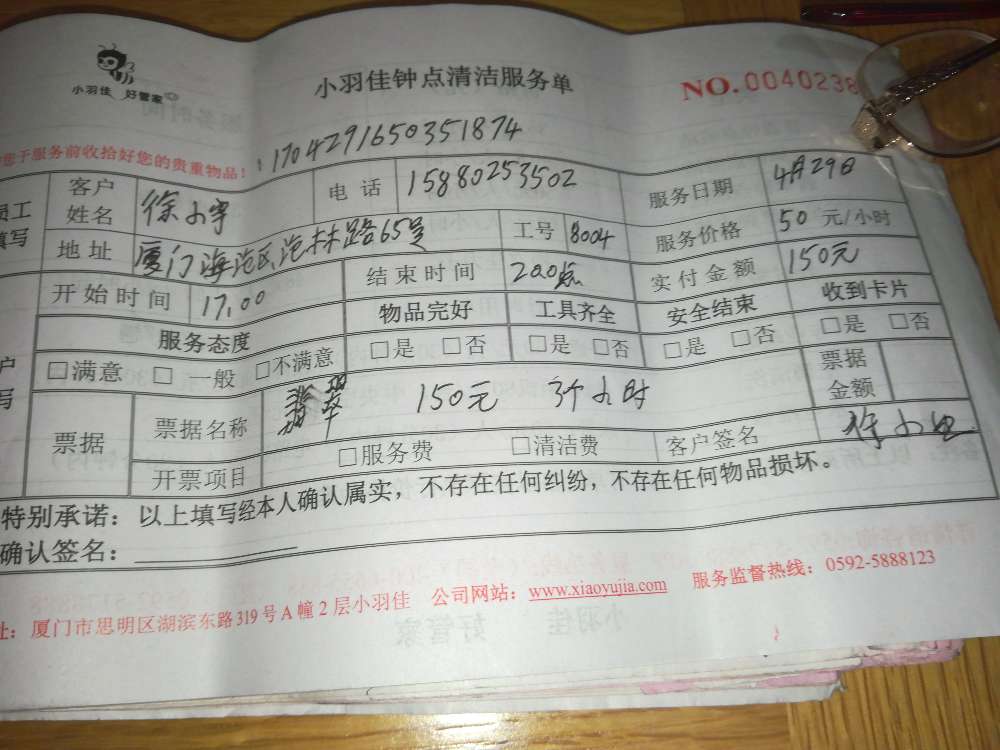 小羽佳 好管家
小羽佳钟点清洁服务单
NO.0040238
您于服务前收拾好您的贵重物品！：1704291650351874
员工填写 客户姓名 徐小宇 电话 15880253502 服务日期 4月29日
地址 厦门海沧区沧林路65号 工号 8004 服务价格 50元/小时
开始时间 17.00 结束时间 200点 实付金额 150元
服务态度 物品完好 工具齐全 安全结束 收到卡片
□满意 □一般 □不满意 □是 □否 □是 □否 □是 □否 □是 □否
票据 票据名称 150元 3个小时 票据金额
开票项目 □服务费 □清洁费 客户签名 徐小
特别承诺：以上填写经本人确认属实，不存在任何纠纷，不存在任何物品损坏。
确认签名：
址：厦门市思明区湖滨东路319号A幢2层小羽佳 公司网站：www.xiaoyujia.com 服务监督热线：0592-5888123